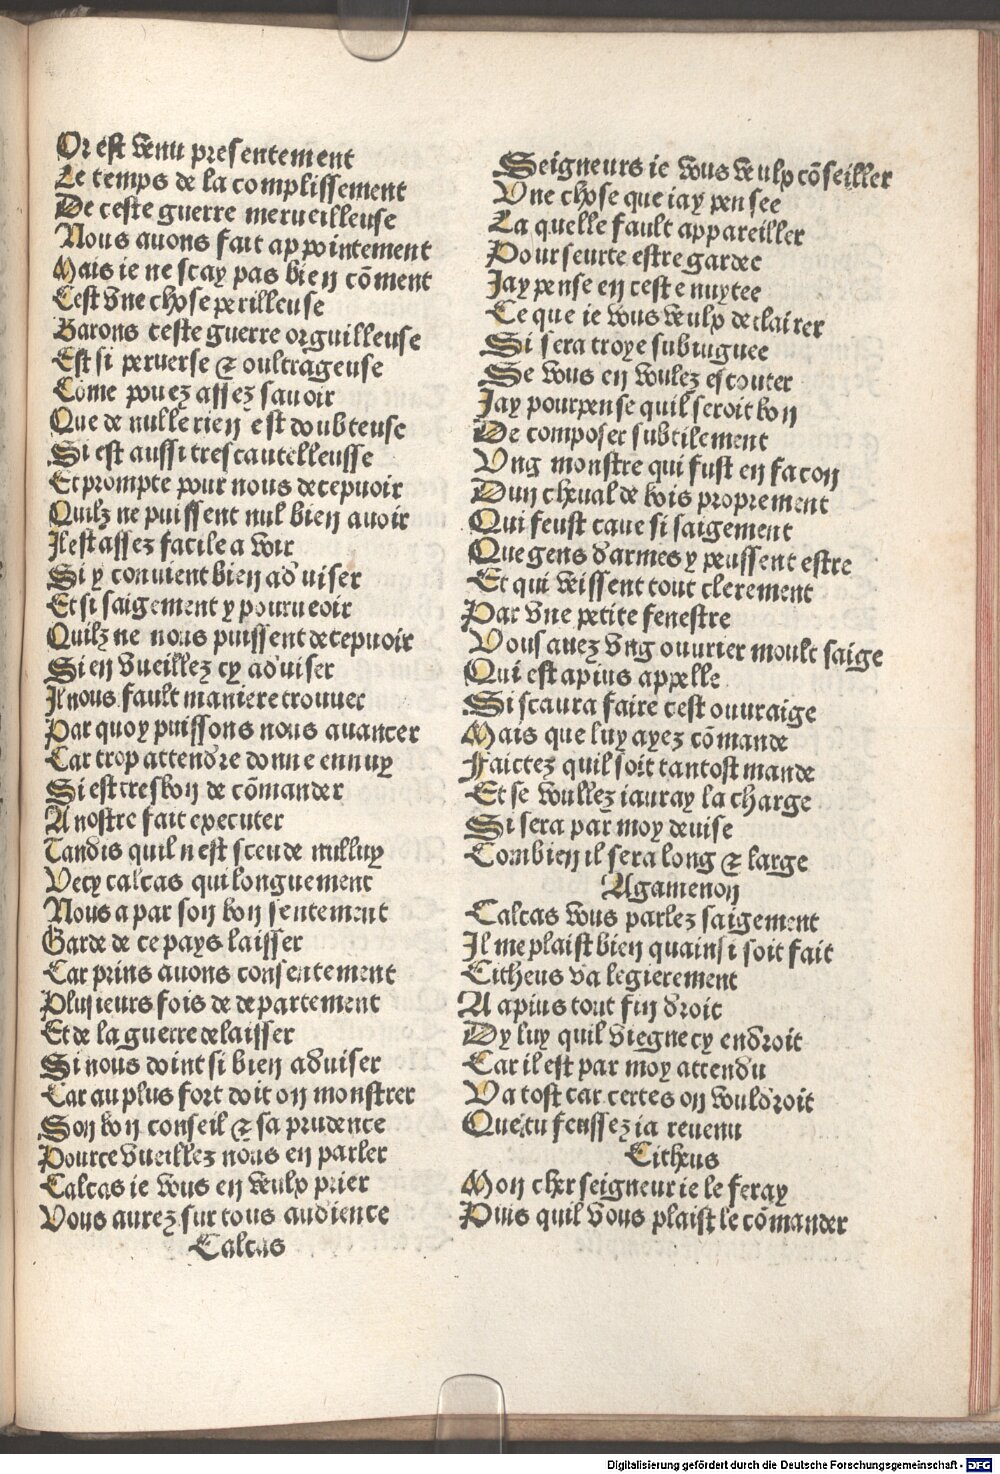 Or est venu presentement
Le temps de la complissement
De ceste guerre merueilleuse
Nous auons fait appointement
Mais ie ne scay pas bien cõment
Cest vne chose perilleuse
Barons ceste guerre orguilleuse
Est si peruerse & oultrageuse
Cõme pouez assez sauoir
Que de nulle rien est doubteuse
Si est aussi trescautelleusse
Et prompte pour nous decepuoir
Quilz ne puissent nul bien auoir
Il est assez facile a voir
Si y conuient bien aduiser
Et si saigement y pourueoir
Quilz ne nous puissent decepuoir
Si en vueillez cy aduiser
Il nous fault maniere trouuer
Par quoy puissons nous auancer
Car trop attendre donne ennuy
Si est tresbon de cõmander
A nostre fait executer
Tandis quil nest sceu de nulluy
Vecy calcas qui longuement
Nous a par son bon sentement
Garde de ce pays laisser
Car prins auons consentement
Plusieurs fois de departement
Et de la guerre delaisser
Si nous doint si bien aduiser
Car au plus fort doit on monstrer
Son bon conseil & sa prudence
Pource vueillez nous en parler
Calcas ie vous en veulx prier
Vous aurez sur tous audience
Calcas
Seigneurs ie vous veulx cõseiller
Vne chose que iay pensee
La quelle fault appareiller
Pour seurte estre gardee
Jay pense en ceste nuytee
Ce que ie vous veulx declairer
Si sera troye subiuguee
Se vous en voulez escouter
Jay pourpense quil seroit bon
De composer subtilement
Vng monstre qui fust en facon
Dun cheual de bois proprement
Qui feust caue si saigement
Que gens darmes y peussent estre
Et qui veissent tout clerement
Par vne petite fenestre
Vous auez vng ouurier moult saige
Qui est apius appelle
Si scaura faire cest ouuraige
Mais que luy ayez cõmande
Faictez quil soit tantost mande
Et se voullez iauray la charge
Si sera par moy deuise
Combien il sera long & large
Agamenon
Calcas vous parlez saigement
Il me plaist bien quainsi soit fait
Citheus va legierement
A apius tout fin droit
Dy luy quil viegne cy endroit
Car il est par moy attendu
Va tost car certes on vouldroit
Que tu feussez ia reuenu
Citheus
Mon cher seigneur ie le feray
Puis quil vous plaist le cõmander
Digitalisierung gefördert durch die Deutsche Forschungsgemeinschaft - DFG